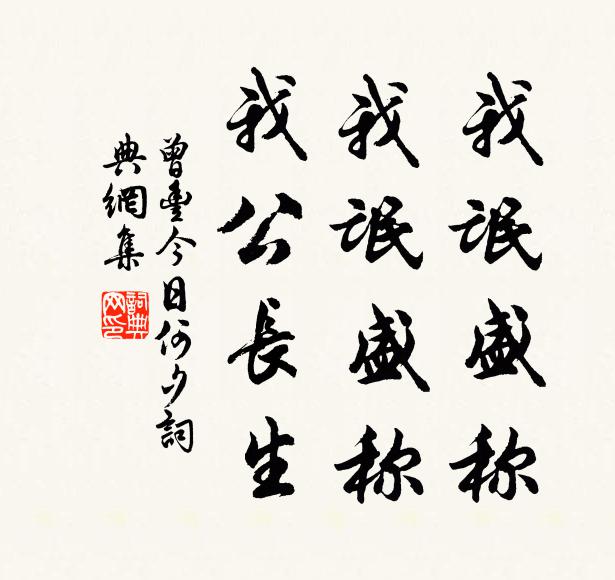 我氓盛称
我氓盛称
我公長生
曾豐今日何夕詞
典網集
詞典
网印